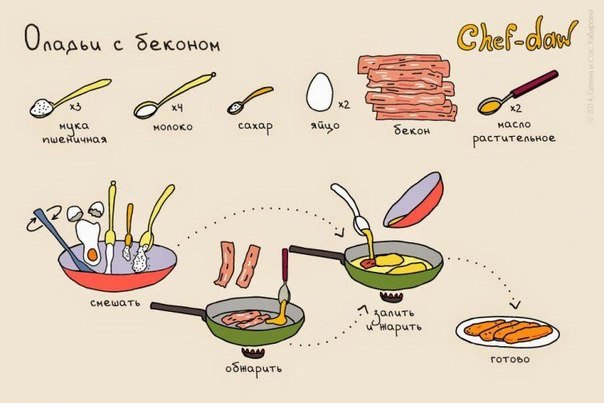 Оладьи с беконом
Chef-daw
x3
x4
x2
x2
мука
пшеничная
молоко
сахар
яйцо
бекон
масло
растительное
смешать
обжарить
залить
и жарить
готово
© 2014 Галина и Стас Хабаровы